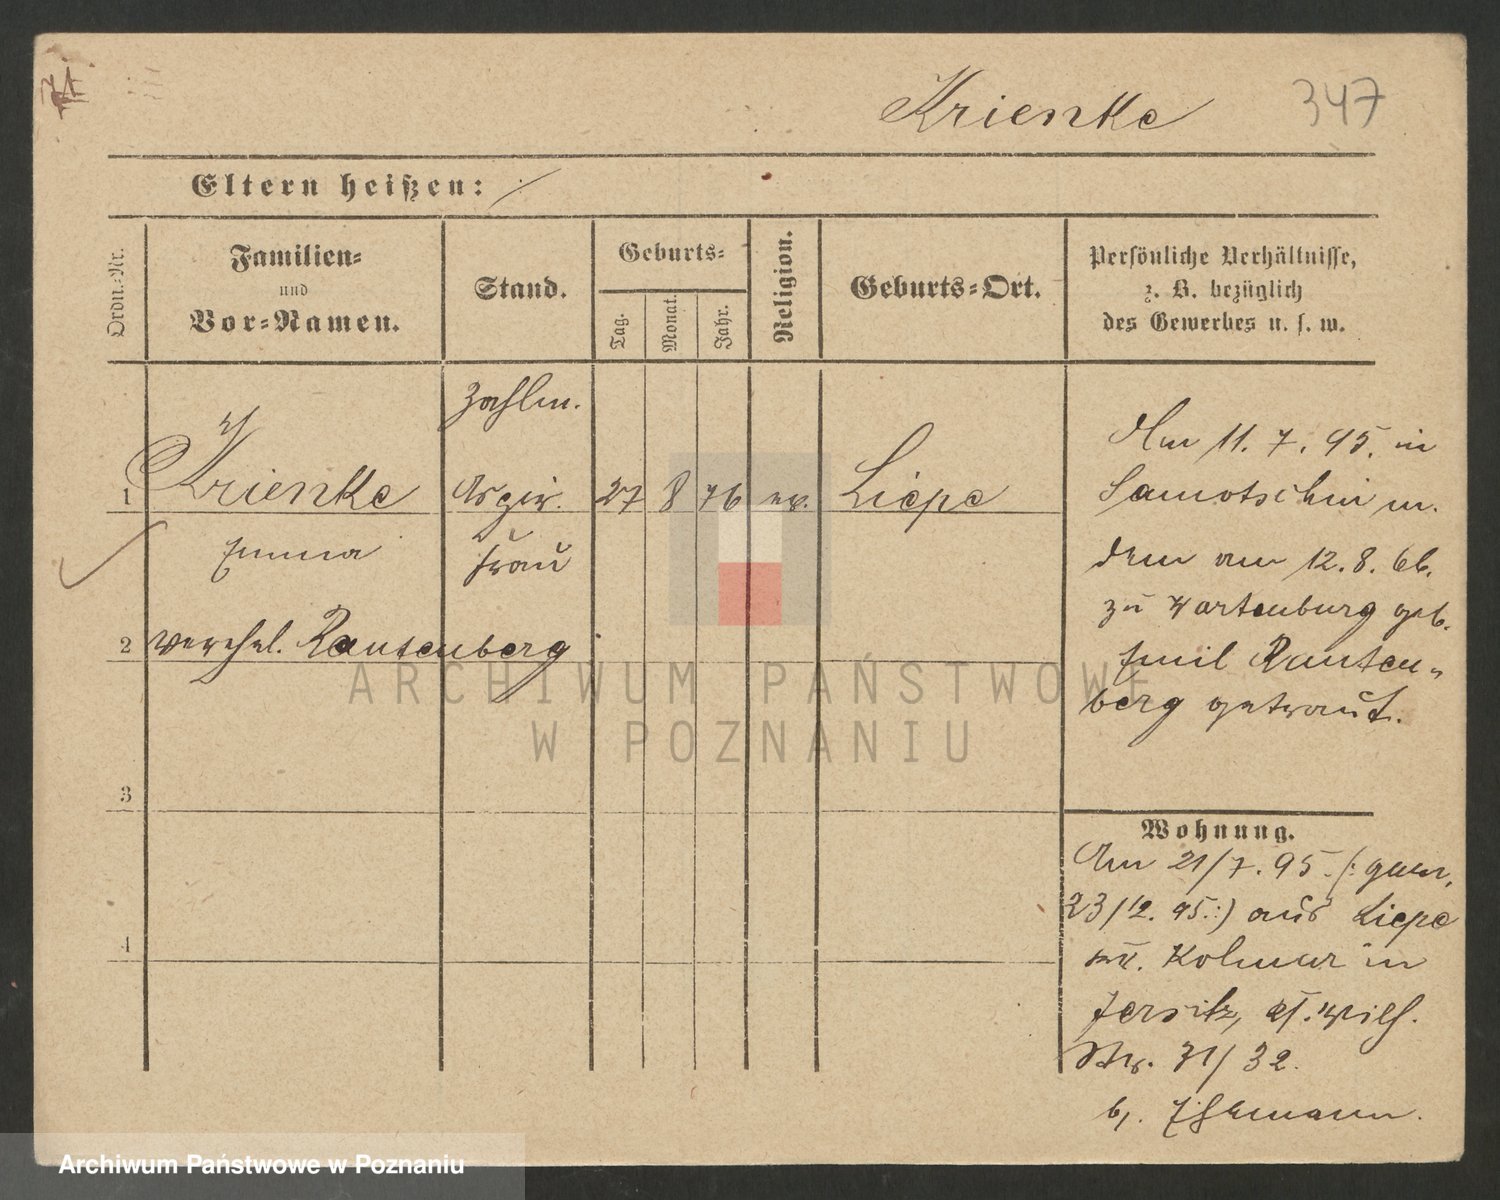 Krienke 347
Eltern heißen: /
Ordn.-Nr.
Familien-
und
Vor-Namen.
Stand.
Geburts-
Tag.
Monat.
Jahr.
Religion.
Geburts-Ort.
Persönliche Verhältnisse,
z. B. bezüglich
des Gewerbes u. s. w.
Zahlm.
1 Krienke Aspir. 27 8 76 ev. Liepe
Emma Frau
2 verehel. Rautenberg
3
4
Am 11. 7. 95. in
Samotschin m.
dem am 12. 8. 66.
zu Wartenburg geb.
Emil Rauten-
berg getraut.
Wohnung.
Am 21/7. 95. (: gem.
23/12. 95. :) aus Liepe
Kolmar in
Jersitz, Wilh.
Str. 31/32.
b.
ARCHIWUM PAŃSTWOWE
W POZNANIU
Archiwum Państwowe w Poznaniu